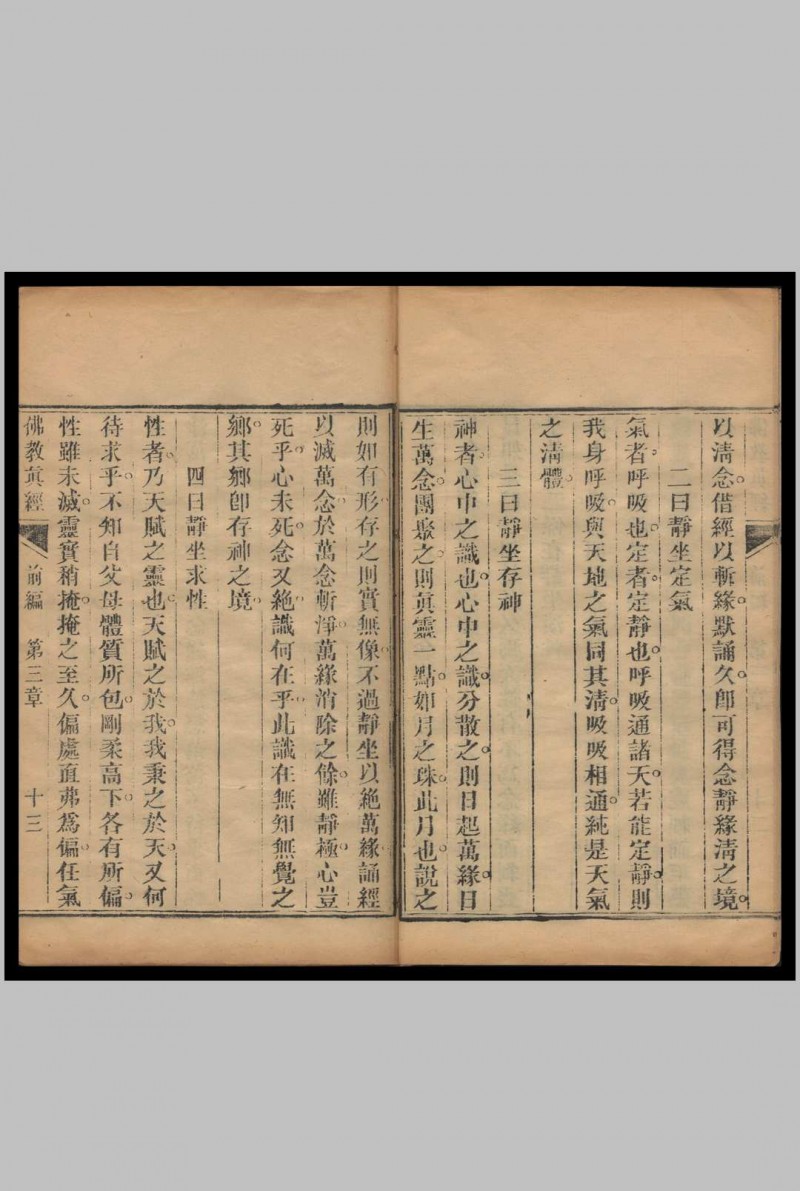 以清念借經以斬緣默誦久卽可得念靜緣淸之境
二曰靜坐定氣
氣者呼吸也定者定靜也呼吸通諸天若能定靜則
我身呼吸與天地之氣同其淸吸吸相通純是天氣
之淸體
三曰靜坐存神
神者心中之識也心中之識分散之則日起萬緣日
生萬念團聚之則眞靈一點如月之珠此月也說之
則如有形存之則實無像不過靜坐以絶萬緣誦經
以滅萬念於萬念斬淨萬緣消除之餘雖靜極心豈
死乎心未死念又絕識何在乎此識在無知無覺之
鄉其鄉卽存神之境
四曰靜坐求性
性者乃天賦之靈也天賦之於我我秉之於天又何
待求乎不知自父母體質所包剛柔高下各有所偏
性雖未滅靈實稍掩掩之至久偏處直弗爲偏任氣
佛教眞經 前編 第三章 十三